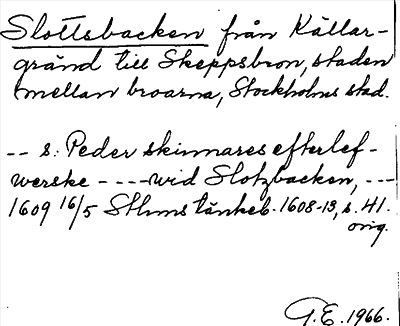 Slottsbacken från Källar-
gränd till Skeppsbron, staden
mellan broarna, Stockholms stad.
-- s: Peder skinnares efterlef-
werske ---- wid Slotzbacken, ---
1609 16/5 Sthms tänkeb. 1608-13, s. 41.
orig.
G.E. 1966.